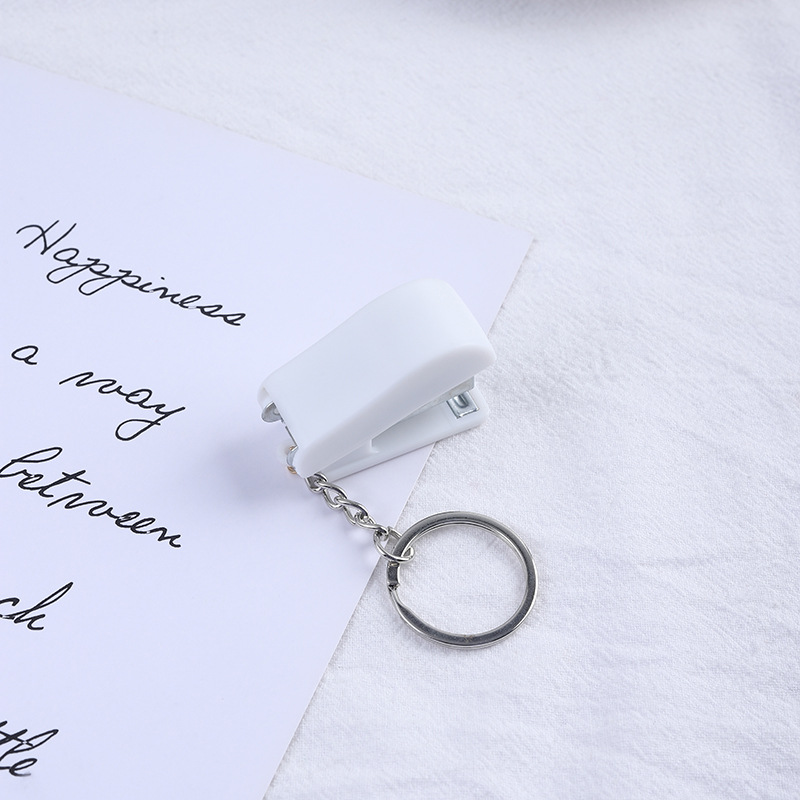 Happiness
a way
between
ch
ttle